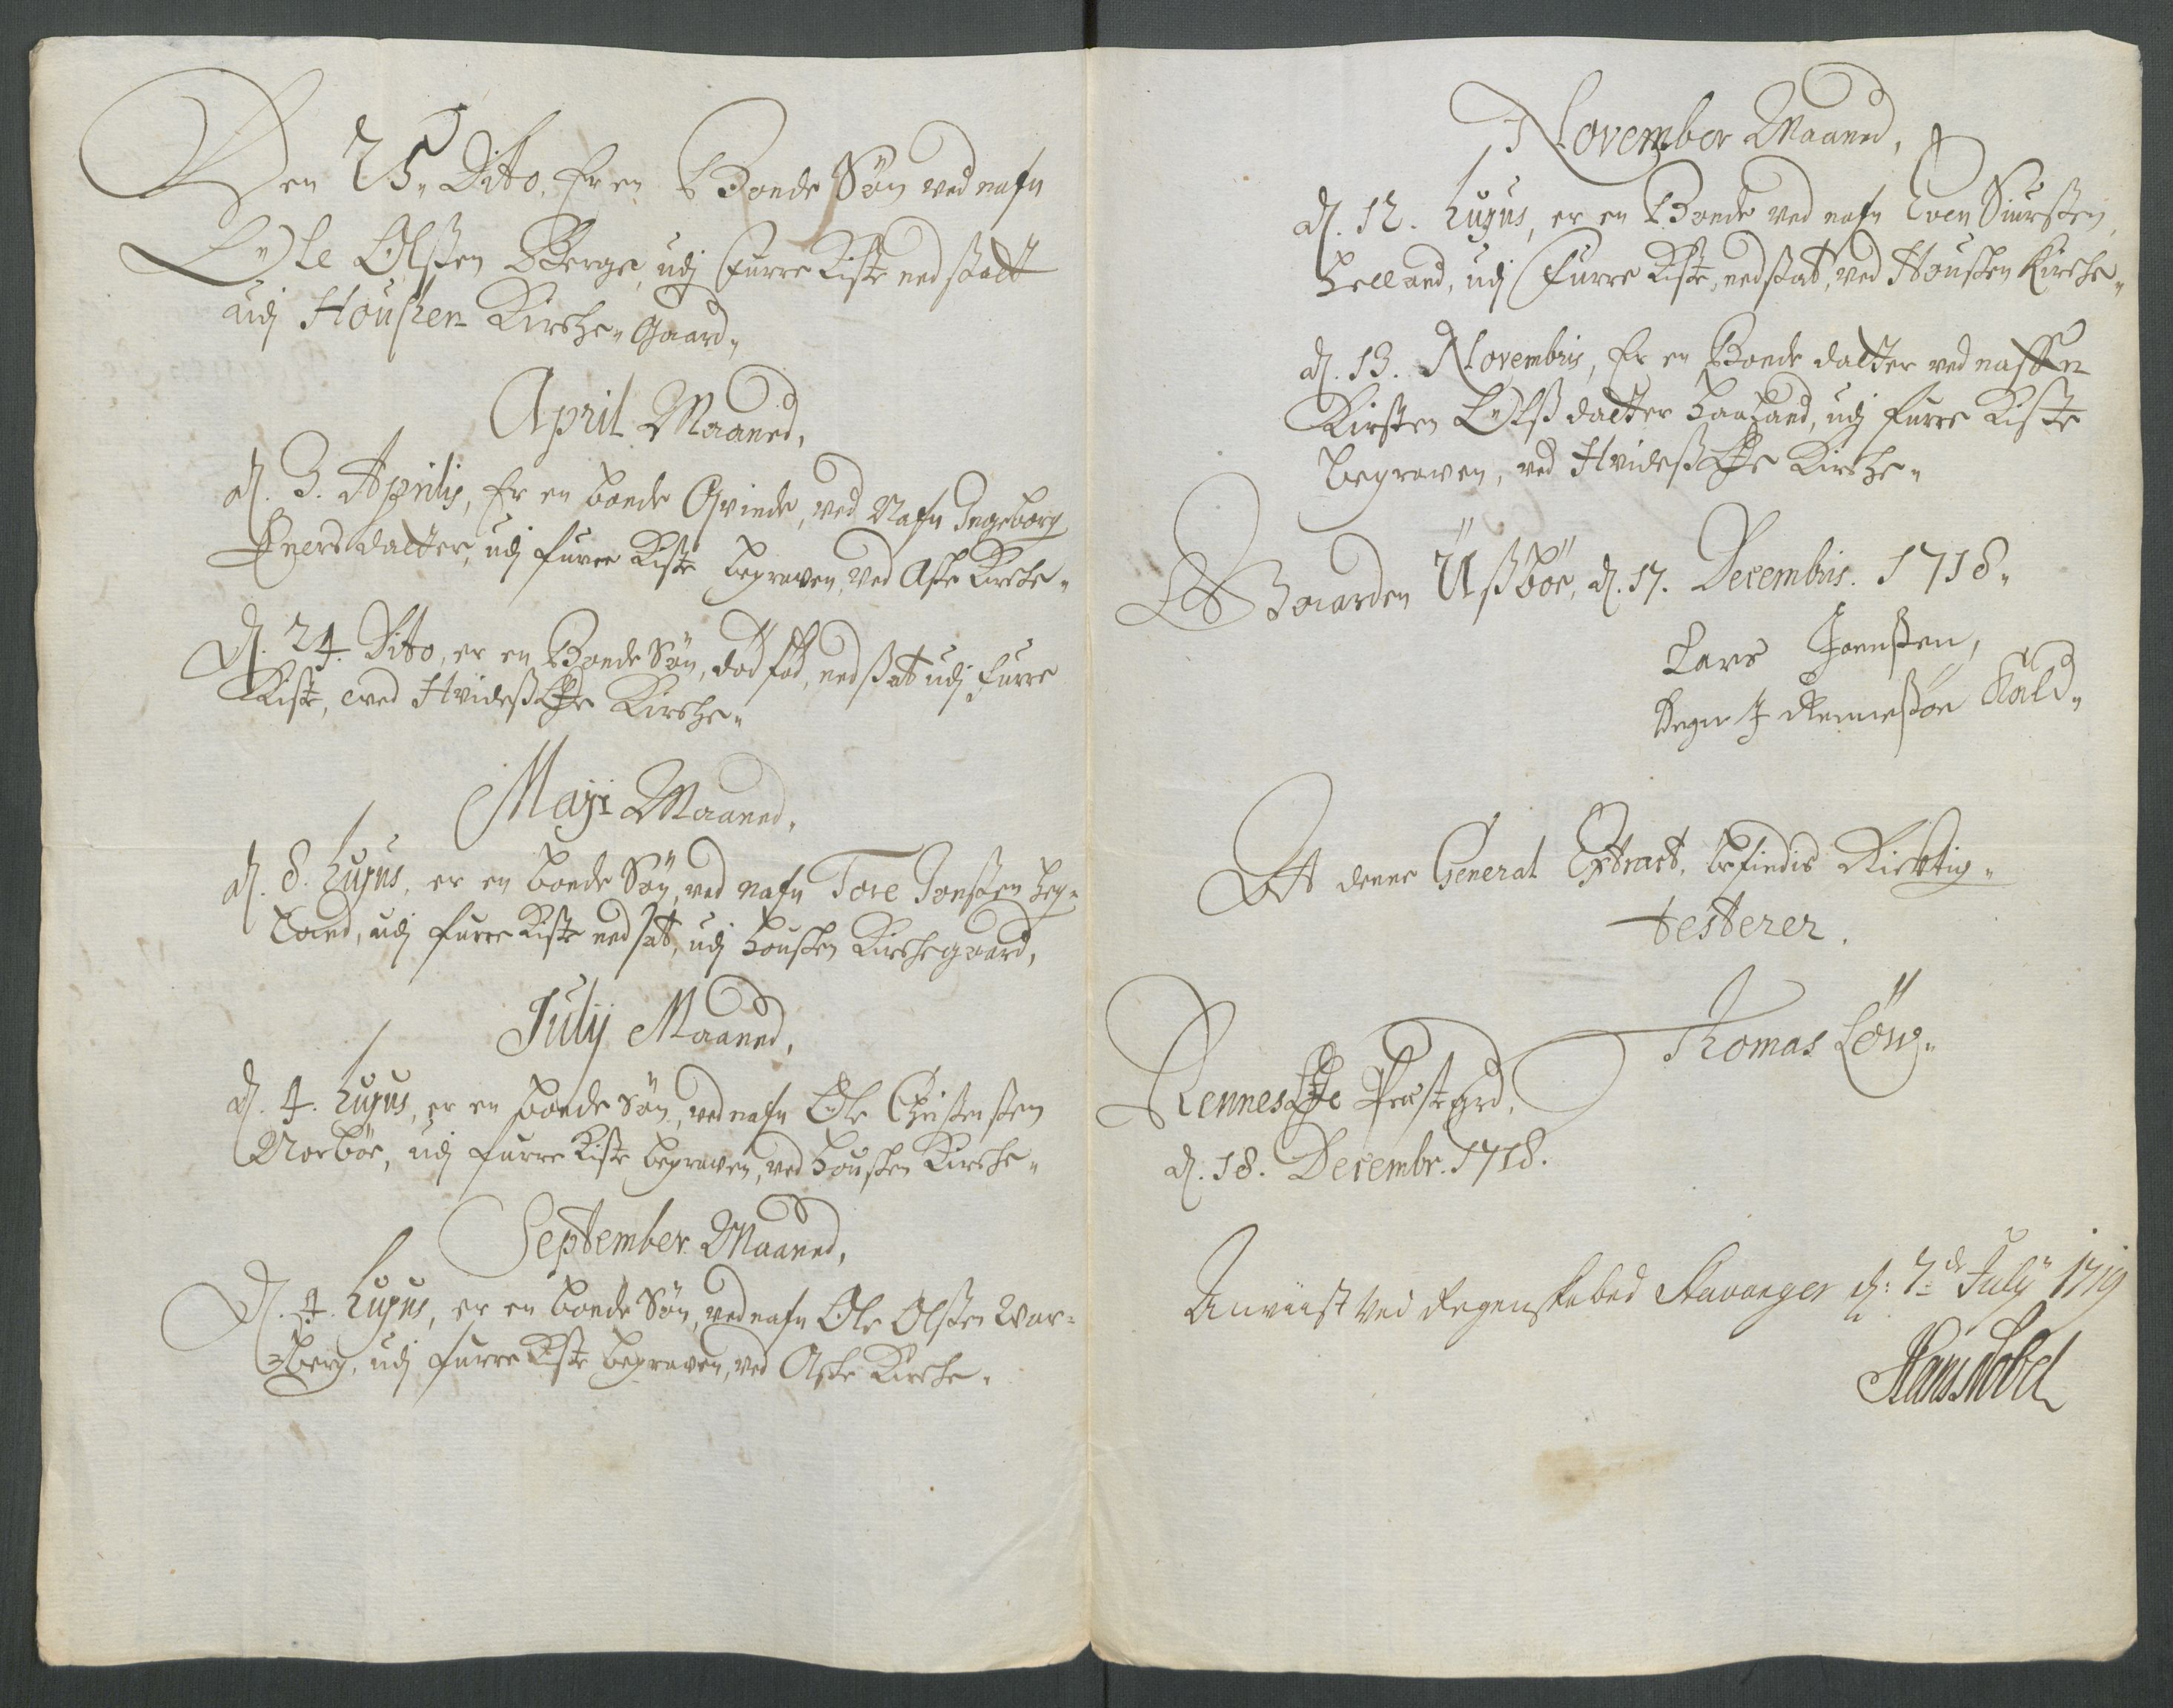 Den 25. Dito, Er en Bonde Søn ved nafn
Ole Olsten Berge, udj Furre Kiste nedsatt
udj Housken Kirche Gaard,
April Maaned,
d. 3. Aprilis, Er en bonde Qvinde, ved Nafn Ingeborg
datter, udj furre Kiste begraven, ved Aske Kirche
D. 24. Dito, er en Bonde Søn, død fød, nedsat udj furre
Kiste, ved Hvidesøe Kirche
Maji Maaned,
d. 8. hujus, er en bonde Søn, ved nafn Tore Jonsen Hey-
land, udj furre Kiste nedsat, udj Housken Kirchegaard,
Julij Maaned,
d. 4. hujus, er en bonde Søn, ved nafn Ole Christensten
Norbøe, udj furre Kiste begraven, ved Housken Kirche
September Maaned,
D. 4. hujus, er en bonde Søn, ved nafn Ole Olsten War-
berg, udj furre Kiste begraven, ved Aske Kirche
November Maaned,
d. 12. hujus, er en Bonde ved nafn Even Siursten
Helland, udj Furre Kiste, nedsat, ved Housken Kirche
d. 13. Novembris, Er en Bonde datter ved naffn
Kirsten datter Haaland, udj furre Kiste
begraven, ved Hvidesøe Kirche
Gaarden Üsbøe, d. 17. Decembris. 1718.
Lars Joensten,
Degn J Rennesøe Kald,
At denne General Extract, befindis Richtig
testerer.
Thomas Löw
Rennesøe Præstegrd,
d. 18. Decembr. 1718.
Anviist ved Regenskabed Stavanger d: 7de July 1719
Hans Nobel